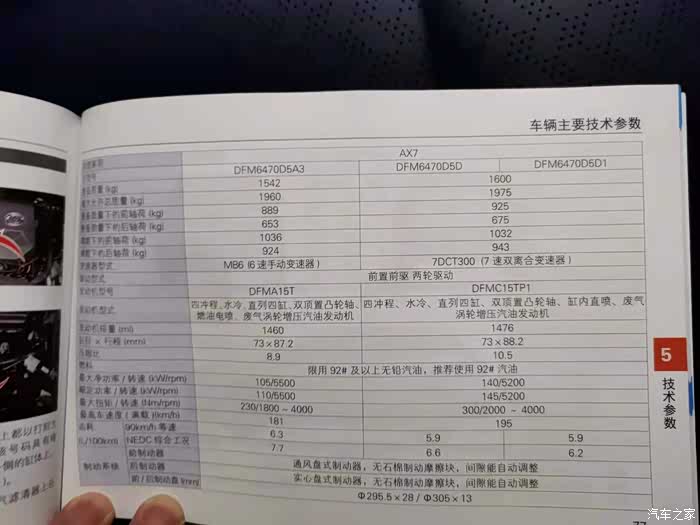 车辆主要技术参数
AX7
DFM6470D5A3 DFM6470D5D DFM6470D5D1
质量 (kg) 1542 1600
最大允许总质量 (kg) 1960 1975
质量下的前轴荷 (kg) 889 925
质量下的后轴荷 (kg) 653 675
满载下的前轴荷 (kg) 1036 1032
满载下的后轴荷 (kg) 924 943
变速器型式 MB6 (6 速手动变速器) 7DCT300 (7 速双离合变速器)
驱动型式 前置前驱 两轮驱动
发动机型号 DFMA15T DFMC15TP1
发动机型式 四冲程、水冷、直列四缸、双顶置凸轮轴、 四冲程、水冷、直列四缸、双顶置凸轮轴、缸内直喷、废气
燃油电喷、废气涡轮增压汽油发动机 涡轮增压汽油发动机
发动机排量 (ml) 1460 1476
缸径 × 行程 (mm) 73×87.2 73×88.2
压缩比 8.9 10.5
燃料 限用 92# 及以上无铅汽油，推荐使用 92# 汽油
最大净功率 / 转速 (kW/rpm) 105/5500 140/5200
额定功率 / 转速 (kW/rpm) 110/5500 145/5200
最大扭矩 / 转速 (Nm/rpm) 230/1800 ~ 4000 300/2000 ~ 4000
最高车速度 ( 满载 )(km/h) 181 195
油耗 90km/h 等速 6.3 5.9 5.9
(L/100km) NEDC 综合工况 7.7 6.6 6.2
制动系统 前制动器 通风盘式制动器，无石棉制动摩擦块，间隙能自动调整
后制动器 实心盘式制动器，无石棉制动摩擦块，间隙能自动调整
前 / 后制动盘 (mm) Φ295.5×28 / Φ305×13
5
技术参数
上都以打刻方
该号码具有唯
侧的缸体上。
)。
气滤清器上台
77
汽车之家